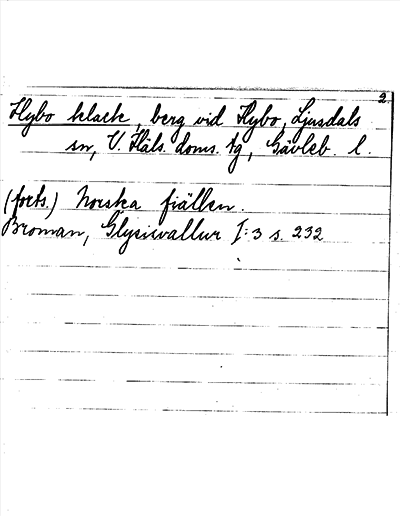 2.
Hybo klack, berg vid Hybo, Ljusdals
sn, V. Häls. doms. tg, Gävleb. l.
(forts.) Norska fjällen.
Broman, Glysisvallur I:3 s. 232